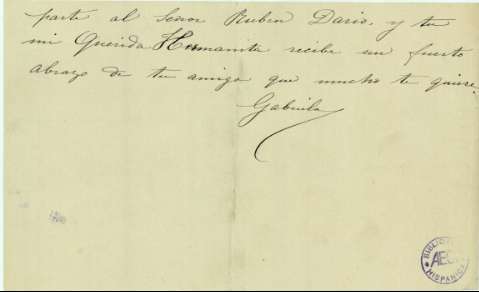 parte al Señor Ruben Dario. y tu
mi Querida Hermanita recibe un fuerto
abrazo de tu amiga que mucho te quiere.
Gabriela
BIBLIOTECA
AECI
HISPANICA